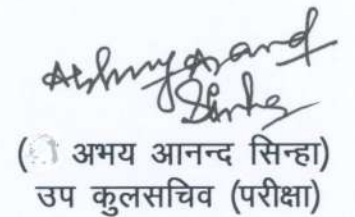 Abhay Anand
Sinha
( अभय आनन्द सिन्हा)
उप कुलसचिव (परीक्षा)